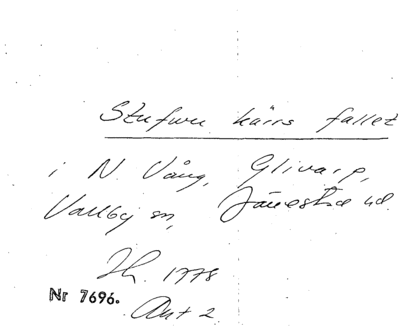 Stufwu kärrs fallet
i N. Vång, Glivarp,
Vallby sn, Järrestad hd.
Th. 1778
Nr 7696. Akt 2